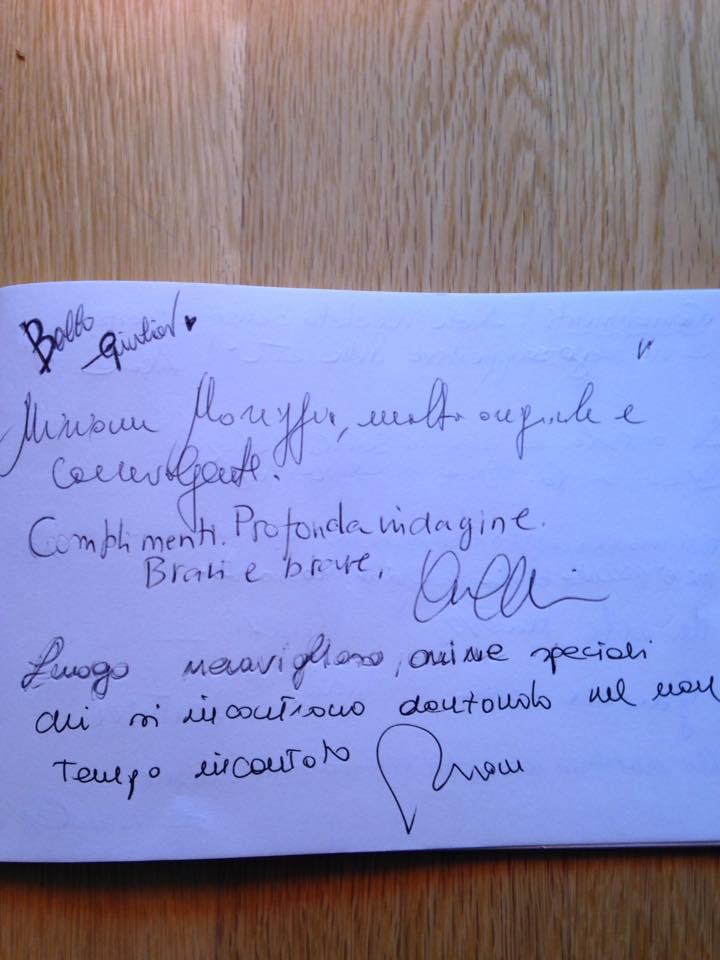 Bello
Miriam, molto originale e
coinvolgente.
Complimenti. Profonda indagine.
Bravi e brave.
Luogo meraviglioso, anime speciali
si incontrano danzando nel non
tempo incantato